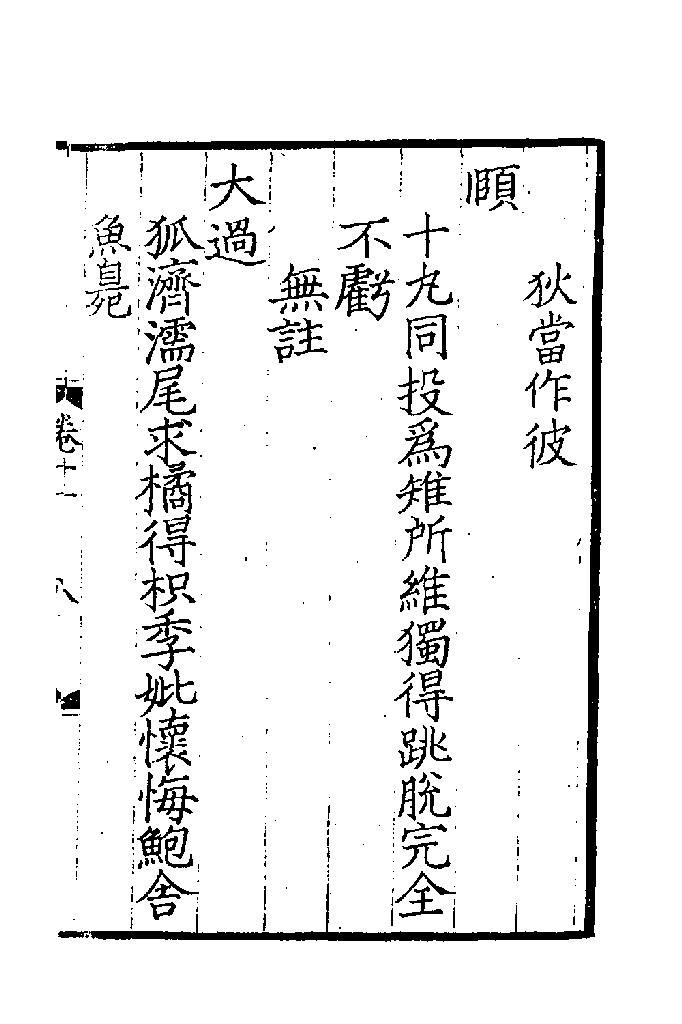 狄當作彼
頥
十丸同投爲雉所維獨得跳脫完全
不虧
無註
大過
狐濟濡尾求橘得枳季妣懷悔鮑舍
魚臰
卷十一
八